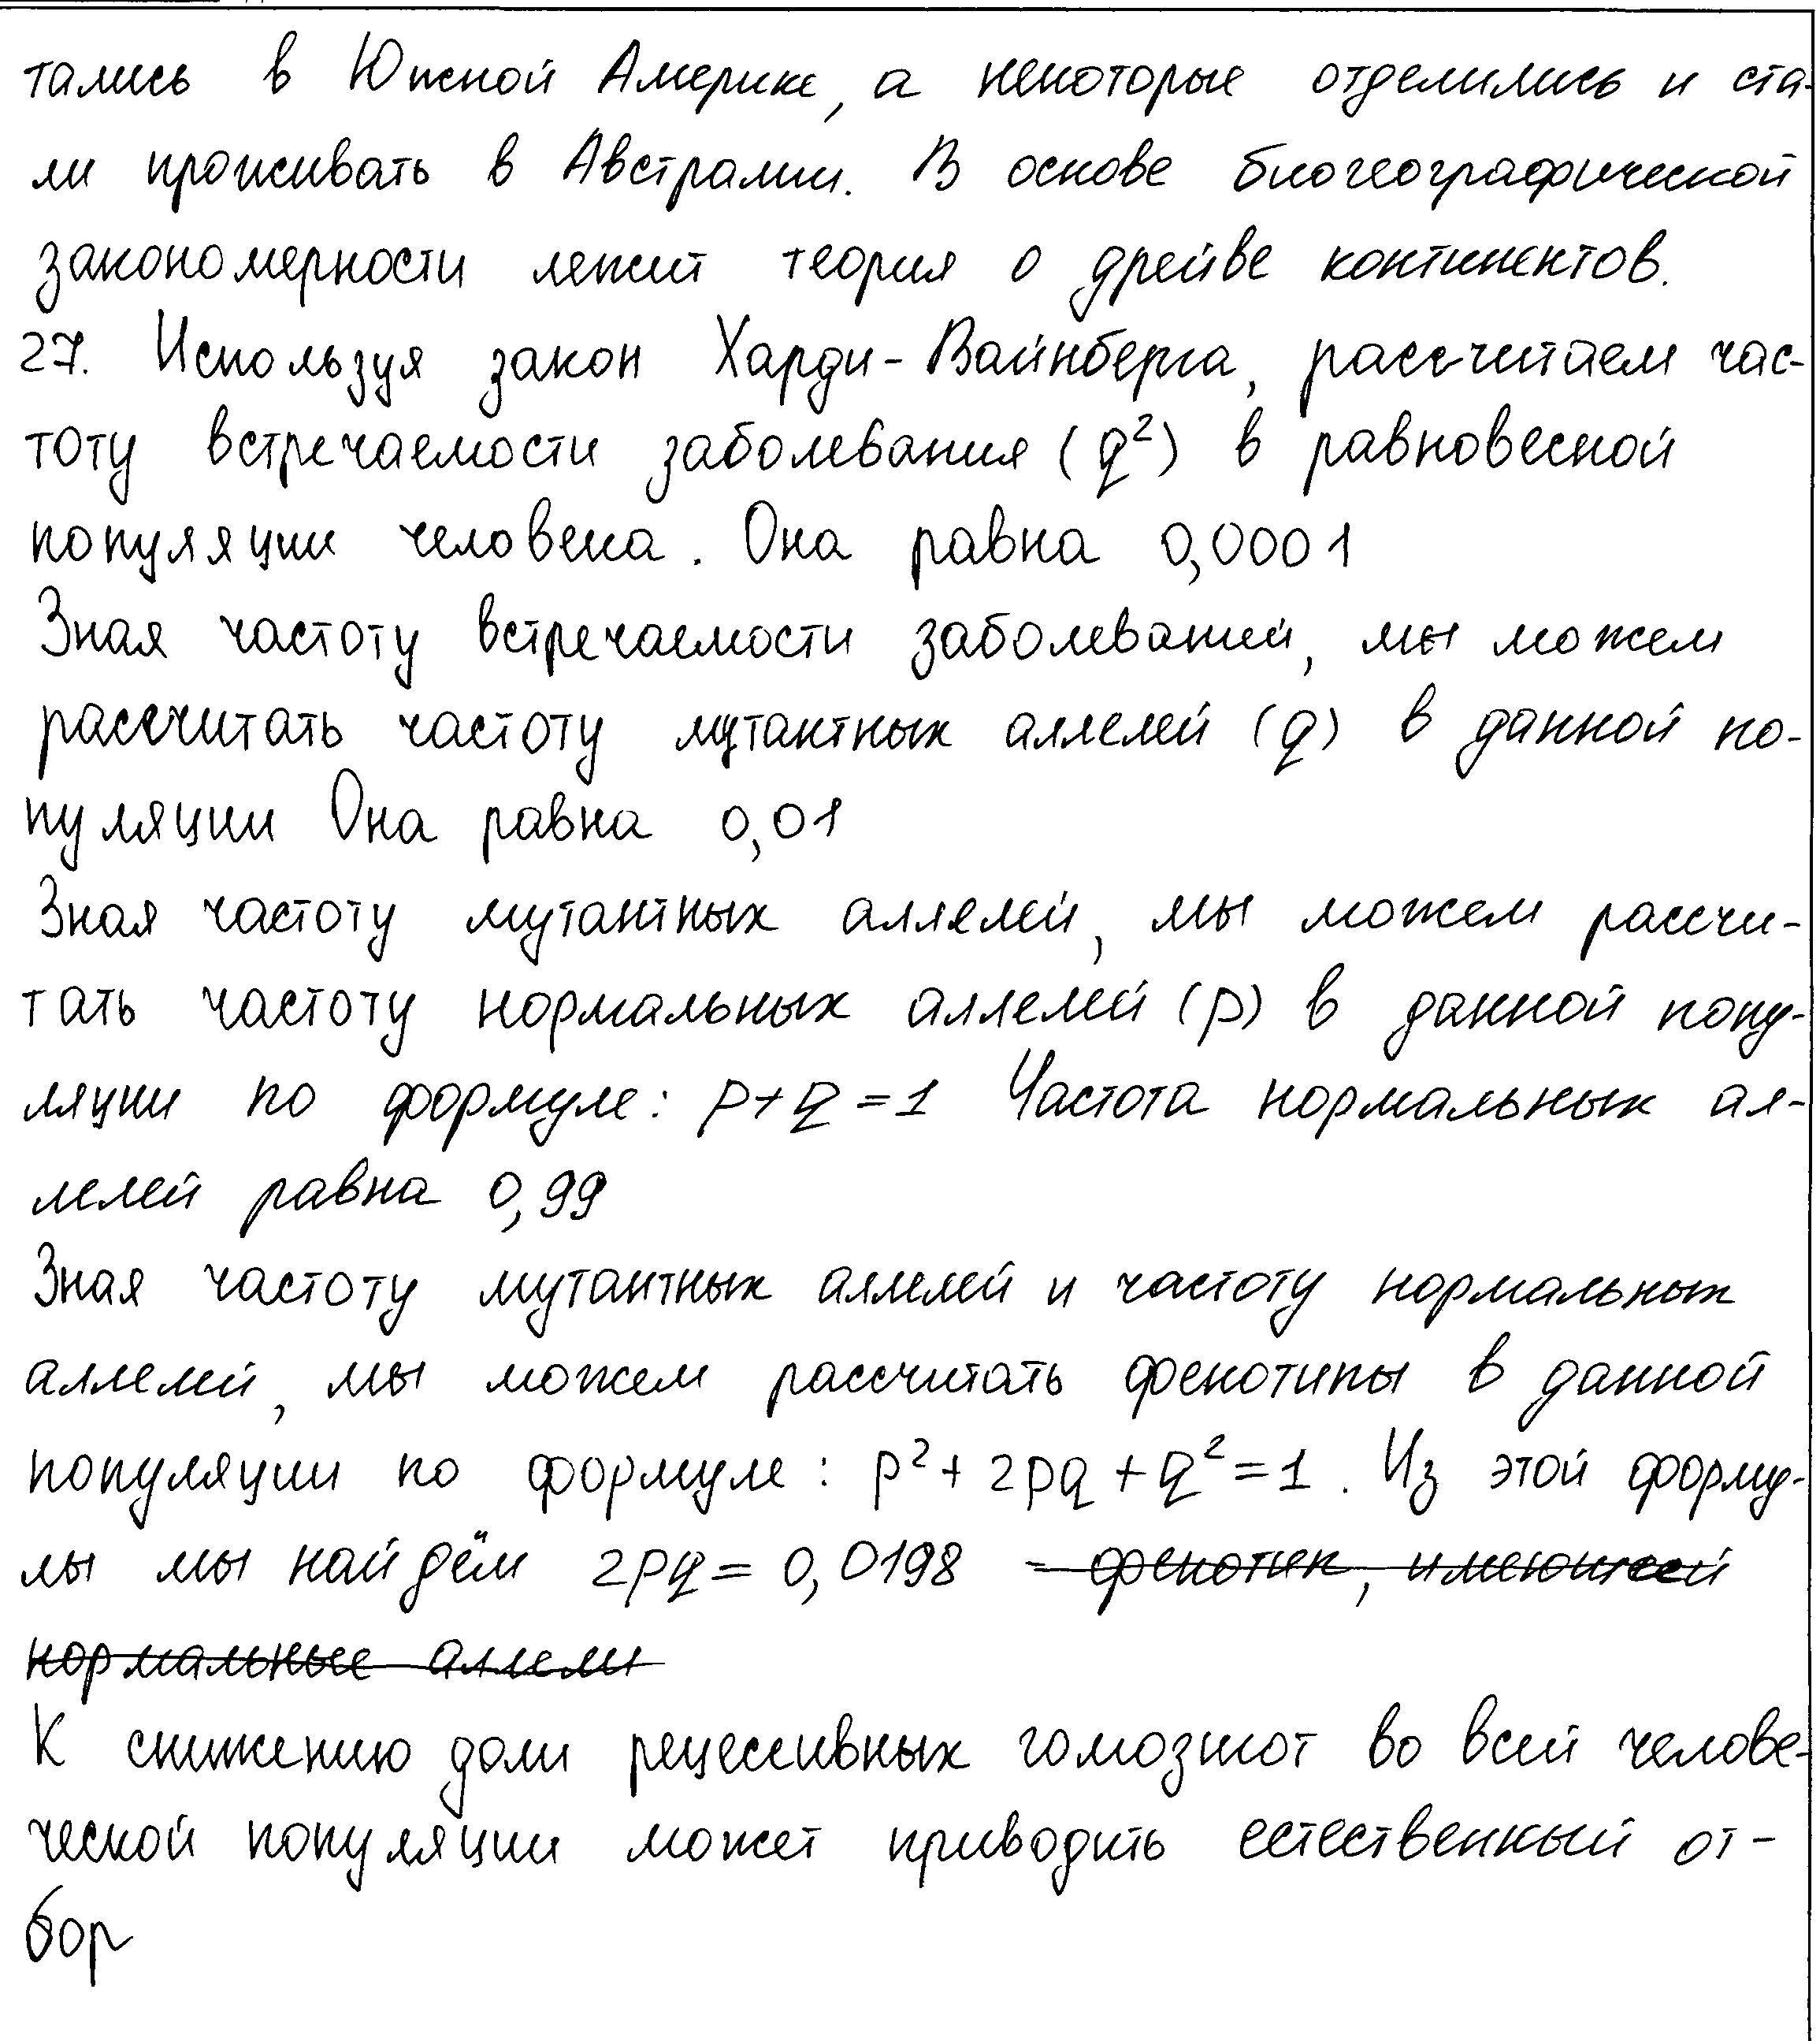 тались в Южной Америке, а некоторые отделились и ста-
ли проживать в Австралии. В основе биогеографической
закономерности лежит теория о дрейве континентов.
27. Используя закон Харди-Вайнберга, рассчитаем час-
тоту встречаемости заболевания (q²) в равновесной
популяции человека. Она равна 0,0001
Зная частоту встречаемости заболеваний, мы можем
рассчитать частоту мутантных аллелей (q) в данной по-
пуляции Она равна 0,01
Зная частоту мутантных аллелей, мы можем рассчи-
тать частоту нормальных аллелей (p) в данной попу-
ляции по формуле: p+q=1 Частота нормальных ал-
лелей равна 0,99
Зная частоту мутантных аллелей и частоту нормальных
аллелей, мы можем рассчитать фенотипы в данной
популяции по формуле: p²+2pq+q²=1. Из этой форму-
лы мы найдём 2pq=0,0198 - фенотип, имеющей
нормальные аллели
К снижению доли рецессивных гомозигот во всей челове-
ческой популяции может приводить естественный от-
бор